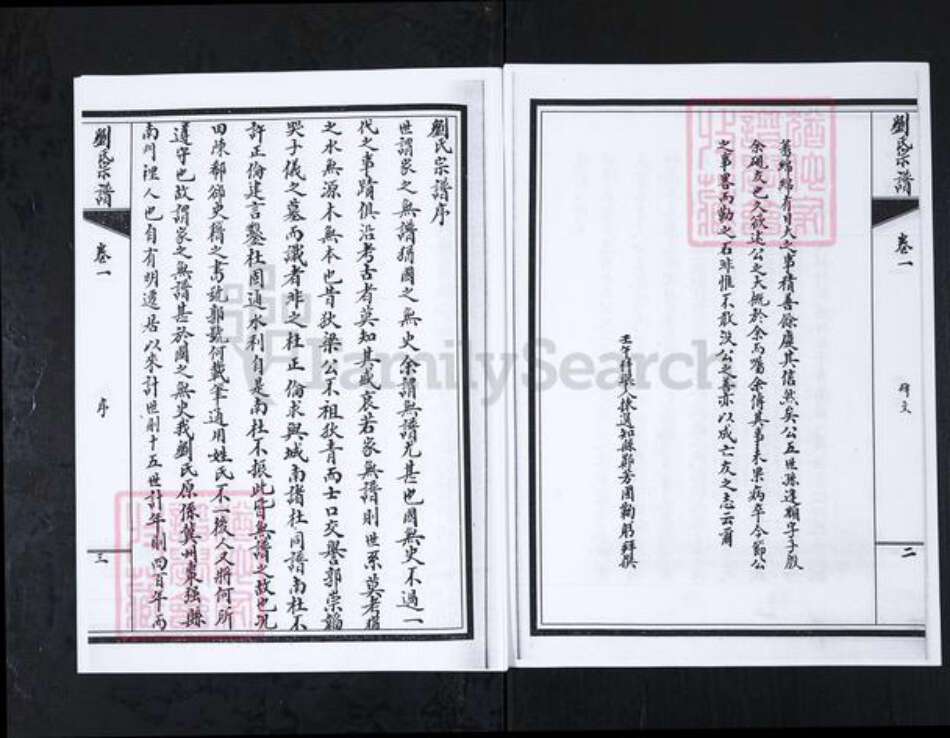 劉氏宗譜
卷一
碑文
二
舊綿綿有日大之事積善餘慶其信然矣公五世孫逢順字子殷
余硯友也久欲述公之大概於余而囑余傳其事未果病卒今節公
之事畧而勒之石非惟不敢沒公之善亦以成亡友之志云爾
壬午科舉人揀選知縣鄭芳圃鞠躬拜撰
劉氏宗譜序
世謂家之無譜猶國之無史余謂無譜尤甚也國無史不過一
代之事蹟俱沿考古者莫知其盛衰若家無譜則世系莫考猶
之水無源木無本也昔狄梁公不祖狄青而士口交譽郭崇韜
哭子儀之墓而識者非之杜正倫求與城南諸杜同譜南杜不
許正倫建言鑿杜固通水利自是南杜不振此皆無譜之故也況
田陳郗郤史稱之為號郭虢何戴筆通用姓氏不一後人又將何所
遵守也故謂家之無譜甚於國之無史我劉氏原係冀州棗強縣
南門裡人也自有明遷居以來計世則十五世計年則四百年而
劉氏宗譜
卷一
序
三
FamilySearch